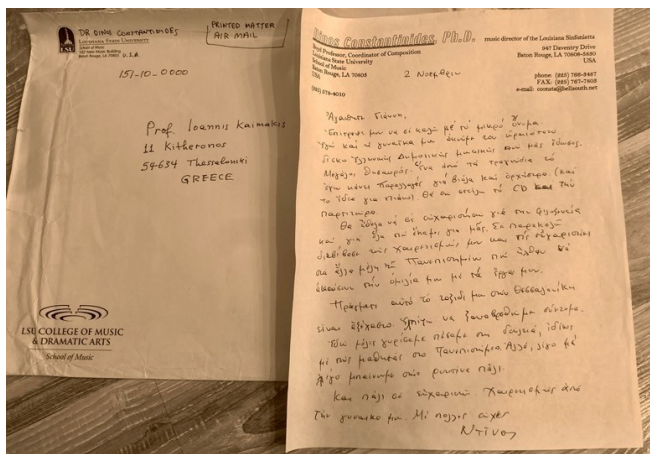 DR DINOS CONSTANTINIDES
LOUISIANA STATE UNIVERSITY
School of Music
Baton Rouge, LA 70803 U.S.A
LSU
PRINTED MATTER
AIR MAIL
151-10-0000
Prof. Ioannis Kaimakis
11 Kitheronos
54634 Thessaloniki
GREECE
LSU COLLEGE OF MUSIC
& DRAMATIC ARTS
School of Music
Dinos Constantinides, Ph.D.
Boyd Professor, Coordinator of Composition
Louisiana State University
School of Music
Baton Rouge, LA 70803
USA
(225) 578-4010
music director of the Louisiana Sinfonietta
947 Daventry Drive
Baton Rouge, LA 70808-5830
USA
phone: (225) 766-3487
FAX: (225) 767-7803
2 Νοεμβρίου
Ἀγαπητέ Γιάννη,
Ἐπίτρεψέ μου νὰ σὲ καλῶ μὲ τὸ μικρό ὄνομα.
Ἐγὼ καὶ ἡ γυναίκα μου ἀκοῦμε τὸν ὡραιότατο
δίσκο Ἑλληνικῆς Δημοτικῆς μουσικῆς που μᾶς ἔδωσες.
Μεγάλος θησαυρός. Ἕνα ἀπὸ τὰ τραγούδια τὸ
ἔχω κάνει Παραλλαγές γιὰ βιόλα καὶ ὀρχήστρα (καὶ
τὸ ἴδιο γιὰ πιάνο). Θὰ σου στείλω τὸ CD καὶ τὴν
παρτιτούρα.
Θὰ ἤθελα νὰ σὲ εὐχαριστήσω γιὰ τὴν φιλοξενία
καὶ γιὰ ὅλα ποὺ ἔκαμες γιὰ μᾶς. Σὲ παρακαλῶ
διαβίβασε τοὺς χαιρετισμούς μου καὶ τὶς εὐχαριστίες
σε ἄλλα μέλη τοῦ Πανεπιστημίου ποὺ ἦλθαν νὰ
ἀκούσουν τὴν ὁμιλία μου μὲ τὰ ἔργα μου.
Πράγματι αὐτὸ τὸ ταξίδι μου στὴν Θεσσαλονίκη
εἶναι ἀξέχαστο. Ἐλπίζω νὰ ξαναβρεθοῦμε σύντομα.
Ἐδῶ μόλις γυρίσαμε πέσαμε στὴ δουλειά, ἰδίως
μὲ τοὺς μαθητὰς στο Πανεπιστήμιο. Ἀλλά, λίγο μὲ
λίγο μπαίνουμε στὴν ρουτίνα πάλι.
Καὶ πάλι σὲ εὐχαριστῶ. Χαιρετισμοὺς ἀπὸ
τὴν γυναίκα μου. Μὲ πολλὲς εὐχὲς
Ντῖνος